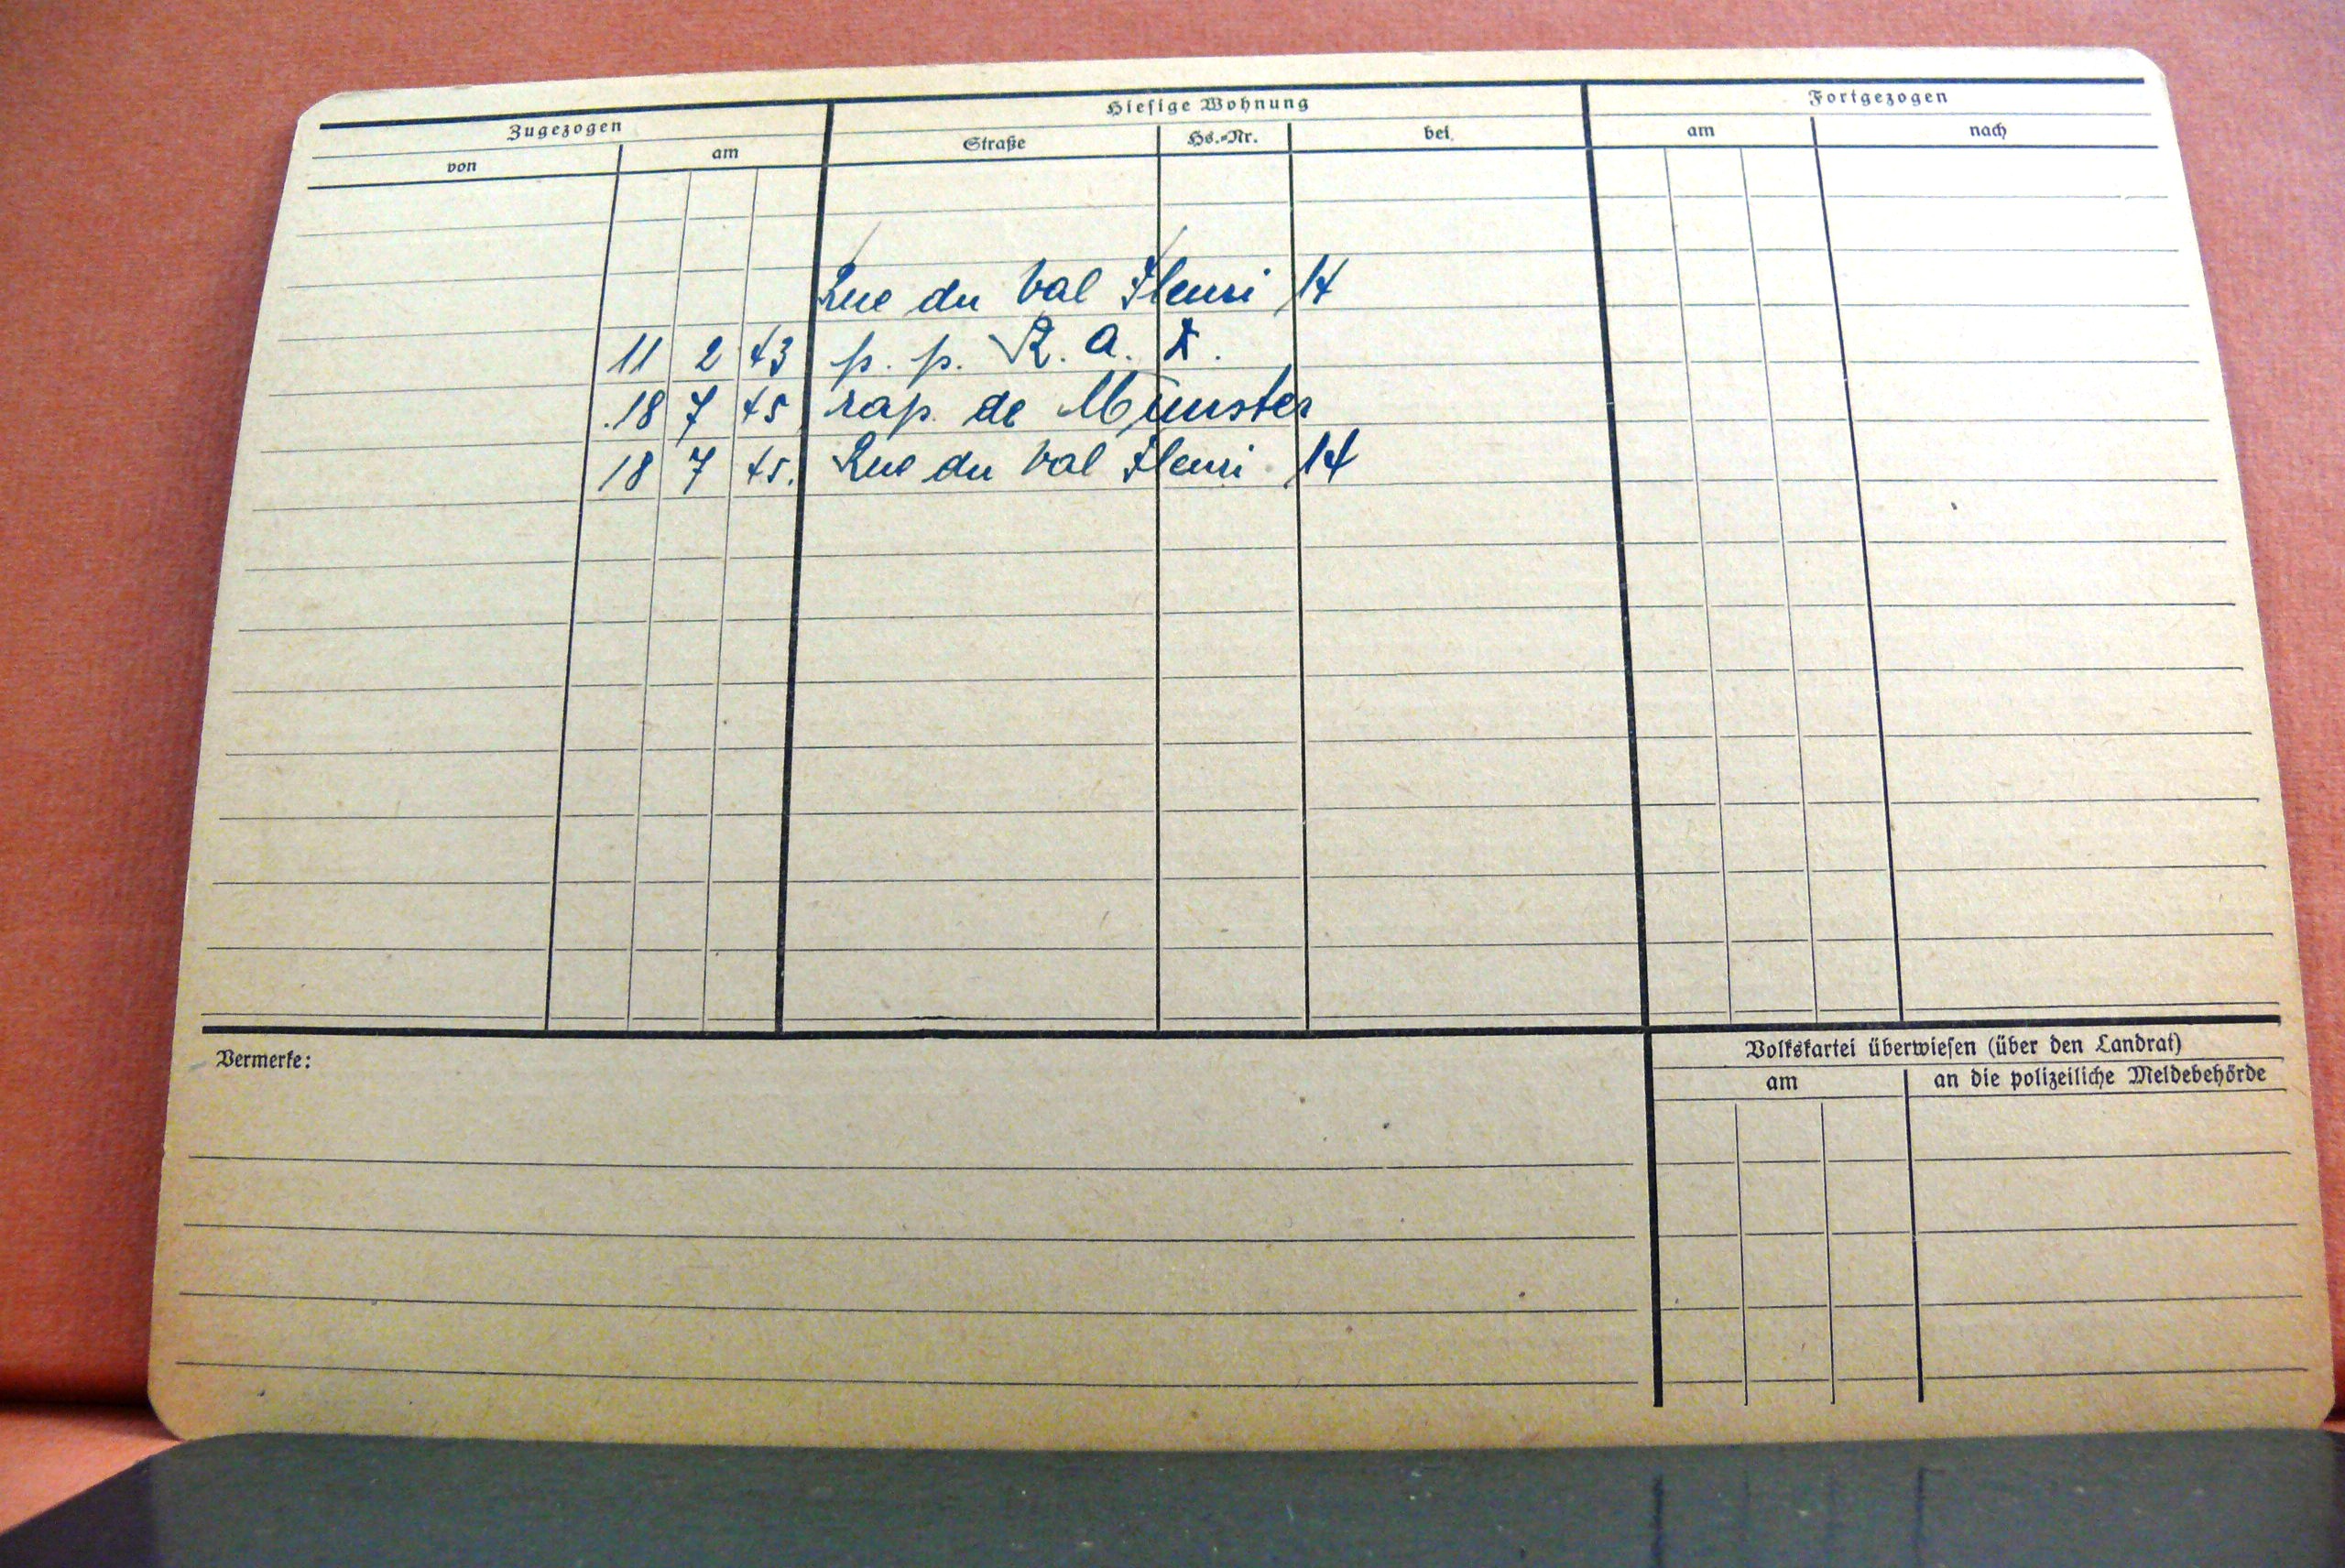 Zugezogen Hiesige Wohnung Fortgezogen
von am Straße Hs.-Nr. bei am nach
Rue du Val Fleuri 14
11 2 43 p. p. R. a. d.
18 7 45 rap. de Münster
18 7 45. Rue du Val Fleuri 14
Vermerke:
Volkskartei überwiesen (über den Landrat)
am an die polizeiliche Meldebehörde